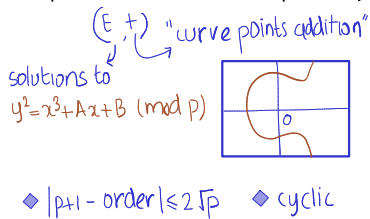 (E, +) "curve points addition"
solutions to
y²=x³+Ax+B (mod p)
0
|p+1 - order|≤2√p
cyclic